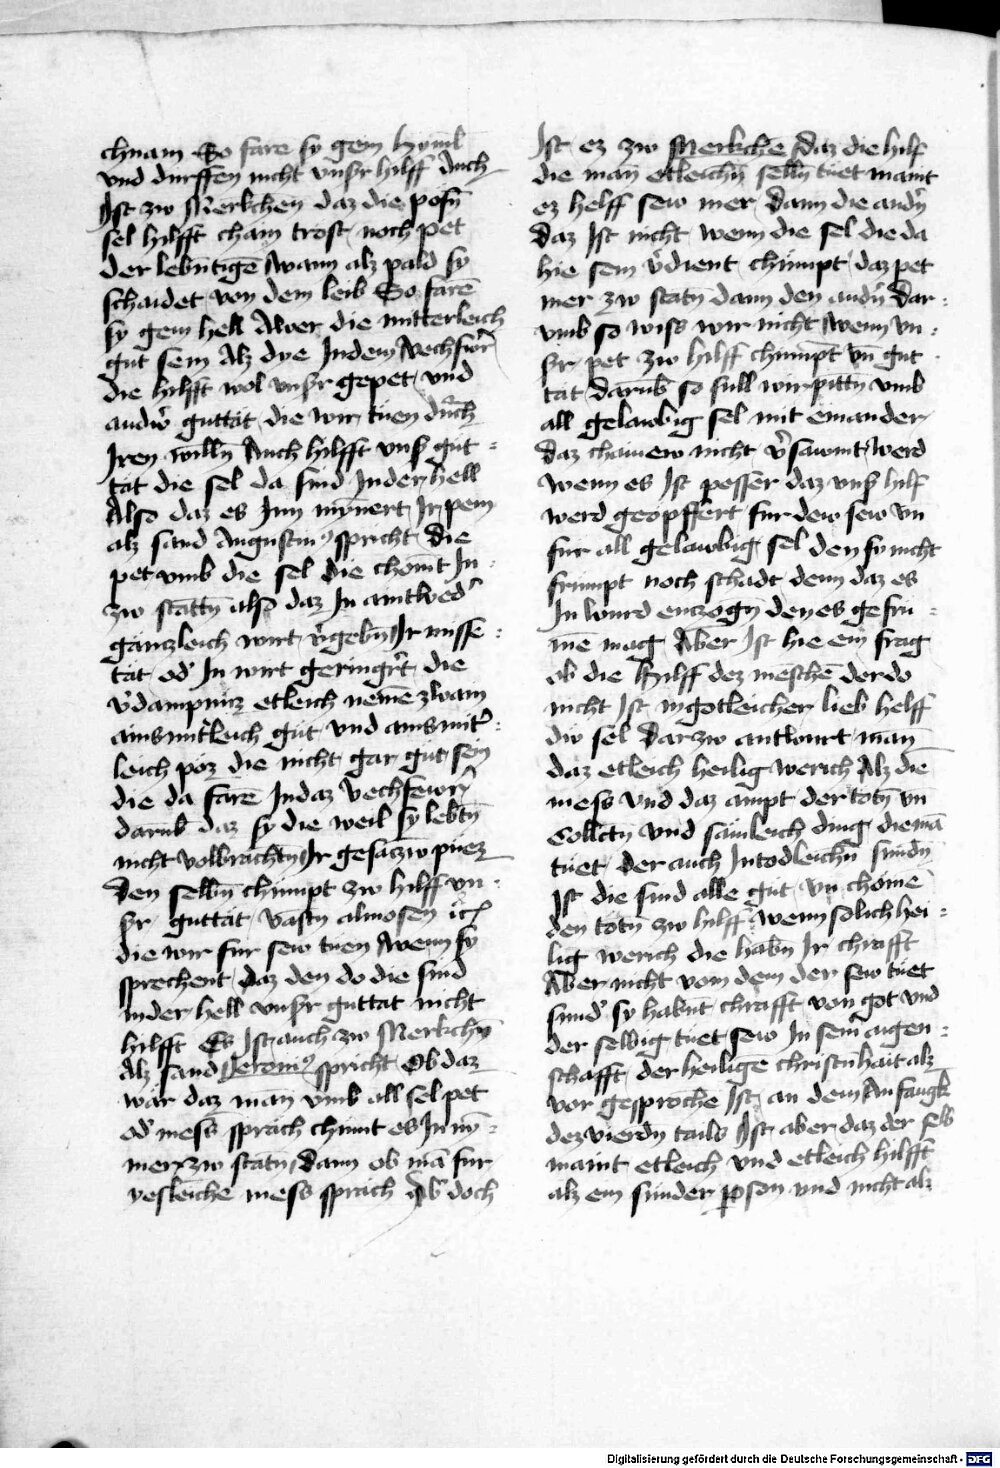 chnam So farē sy gein hyml̄
vnd durffen nicht vnsr hilff Auch
Ist zw Merkchen daz die pösn̄
sel hilfft chain trost noch pet
der lebn̄tigē Wann alz pald sy
schaidet von dem leib So farē
sy gein hell Aver die mitterleich
gut sein Alz dye Indem Vechfwr̄
die hilfft wol vnsr gepet vnd
andr̄ guttät die wir tuen durch
Iren willn̄ Auch hilfft vnsr gut =
tät die sel da sind Inder hell
Also daz es Inn mynnert Ir pein
alz sand Augustin9 spricht Die
pet vmb die sel die chömt In
zw stattn̄ also daz In aintwedr̄
gänczleich wirt v̄gebn̄ Ir misse =
tät od̄ In wirt geringrt̄ die
v̄dampnuz etleich nemē zwain
ainsmit̄leich gut vnd ainsmit̄ =
leich pöz die nicht gar gut sein
die da farē Indaz Vechfewr̄
darūb daz sy die weil sy lebtn̄
nicht volbrachtn̄ Ir gesaczōw puez
den selbn̄ chümpt zw hilff vn =
sr guttät Vastn̄ almosen ic̄
die wir für sew tuen Wenn sy
sprechent daz den do die sind
Inder hell vnsr guttat nicht
hilfft Es Ist auch zw Merkchn̄
Alz sand Jeronim9 spricht Ob daz
wär daz man vmb all sel pet
od̄ mess spräch chümt es In ny =
mer zw statn̄ Dann ob mā für
yesleiche mess spräch Ab̄ doch
Ist ez zw Merkchē daz die hilf
die man etleichn̄ selln̄ tuet maint
ez helff sew mer Dann die andn̄
daz Ist nicht wenn die sel die da
hie sein v̄dient chümpt daz pet
mer zw statn̄ dann den andn̄ Dar =
vmb so wiss wir nicht Wenn vn =
sr pet zw hilff chümpt vn̄ gut
tät Darūb so süll wir pittn̄ vmb
all gelawbig sel mit einander
daz chainew nicht v̄sawmt werd
Wenn es Ist pesser daz vnsr hilf
werd geopffert für dew sew vn̄
für all gelawbig sel den sy nicht
frümpt noch schadt denn daz es
In wurd enczogn̄ den es gefrü =
mē mag Aber Ist hie ein frag
ob die hilff dez menschē der do
nicht Ist in gotleicher lieb helff
die sel Darzw antwurt man
daz etleich heilig werich Alz die
mess Vnd daz ampt der totn̄ vn̄
Collectn̄ vnd sämleich ding die mā
tuet der auch In todleichn̄ sündn̄
Ist die sind alle gut vn̄ chomē
den totn̄ zw hilff Wenn solich hei =
lig werich die habn̄ Ir chrafft
Aber nicht vom dem der sew tuet
sund̄ sy habnt chrafft von got vnd
der selbig tuet sew In sein̄ aigen =
schafft der heiligē christn̄hait alz
vor gesprochē Ist an dem Anfangk
dez vierdn̄ tails Ist aber daz der selb
maint etleich vnd etleich hilfft
alz ein sunder pson vnd nicht alz
Digitalisierung gefördert durch die Deutsche Forschungsgemeinschaft - DFG